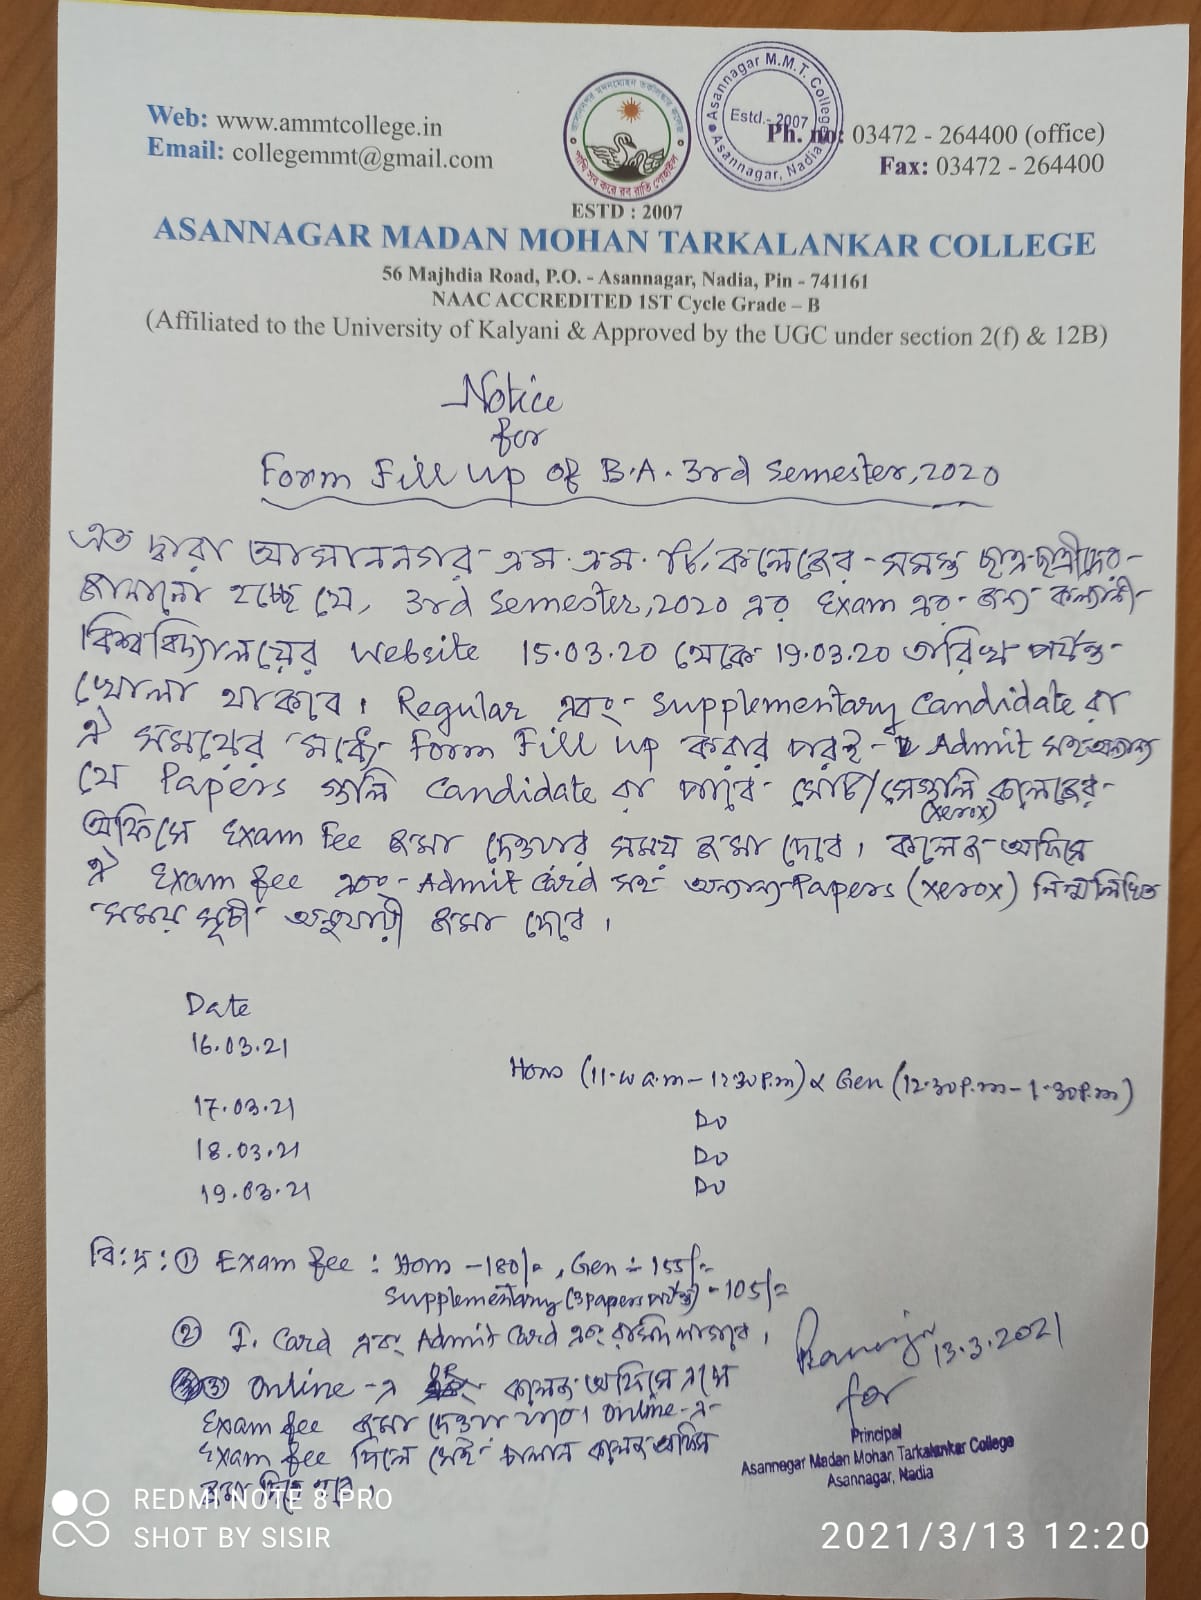 Web: www.ammtcollege.in
Email: collegemmt@gmail.com
Asannagar M.M.T. College
Estd.-2007
Asannagar, Nadia
Ph. no: 03472 - 264400 (office)
Fax: 03472 - 264400
ESTD : 2007
ASANNAGAR MADAN MOHAN TARKALANKAR COLLEGE
56 Majhdia Road, P.O. - Asannagar, Nadia, Pin - 741161
NAAC ACCREDITED 1ST Cycle Grade – B
(Affiliated to the University of Kalyani & Approved by the UGC under section 2(f) & 12B)
Notice
for
Form Fill up of B.A. 3rd Semester, 2020
এত দ্বারা আসাননগর এম. এম. টি. কলেজের সমস্ত ছাত্র-ছাত্রীদের
জানানো হচ্ছে যে, 3rd Semester, 2020 এর Exam এর জন্য কল্যানী
বিশ্ববিদ্যালয়ের Website 15.03.20 থেকে 19.03.20 তারিখ পর্যন্ত
খোলা থাকবে। Regular এবং Supplementary Candidate রা
ঐ সময়ের মধ্যে Form Fill up করার পরই Admit সহ অন্যান্য
যে Papers গুলি Candidate রা পাবে সেটি/সেগুলি (xerox) কলেজের
অফিসে Exam Fee জমা দেওয়ার সময় জমা দেবে। কলেজ অফিসে
ঐ Exam fee এবং Admit Card সহ অন্যান্য Papers (xerox) নিম্নলিখিত
সময় সূচী অনুযায়ী জমা দেবে।
Date
16.03.21
Hons (11.00 a.m – 12.30 P.m) & Gen (12.30 P.m – 1.30 P.m)
17.03.21 Do
18.03.21 Do
19.03.21 Do
বি:দ্র: ① Exam fee : Hons – 180/=, Gen – 155/=
Supplementary (3 papers পর্যন্ত) – 105/=
② I. Card এবং Admit Card এবং রসিদ লাগবে।
③ Online-এ কলেজ অফিসে এসে
Exam fee জমা দেওয়া যাবে। Online-এ
Exam fee দিলে সেই চালান কলেজ অফিসে
জমা দিতে হবে।
13.3.2021
for
Principal
Asannagar Madan Mohan Tarkalankar College
Asannagar, Nadia
REDMI NOTE 8 PRO
SHOT BY SISIR
2021/3/13 12:20